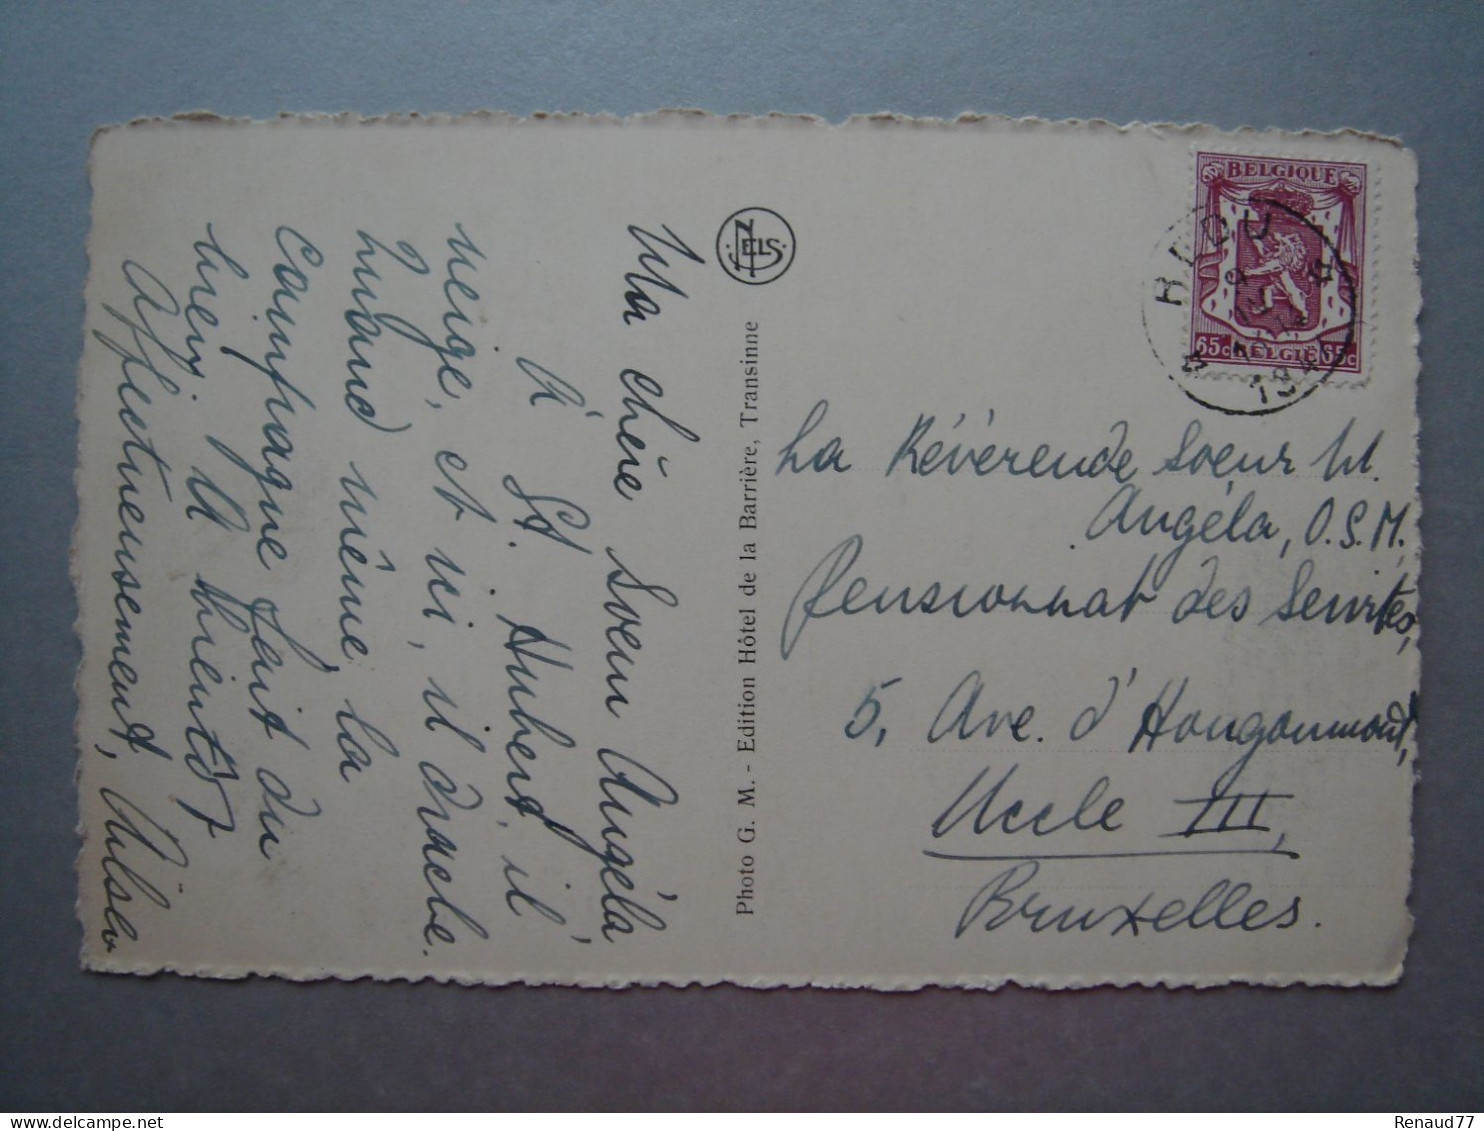 Ma chère Soeur Angéla
A St. Hubert, il
neige, et ici, il drache.
Quand même, la
campagne fait du
bien. A bientôt
Affectueusement,
NELS
Photo G. M. - Edition Hôtel de la Barrière, Transinne
BELGIQUE
65c BELGIË 65c
La Révérende Soeur M.
Angéla, O.S.M.,
Pensionnat des Servites,
5, Ave. d'Hougoumont,
Uccle III,
Bruxelles.
Renaud77